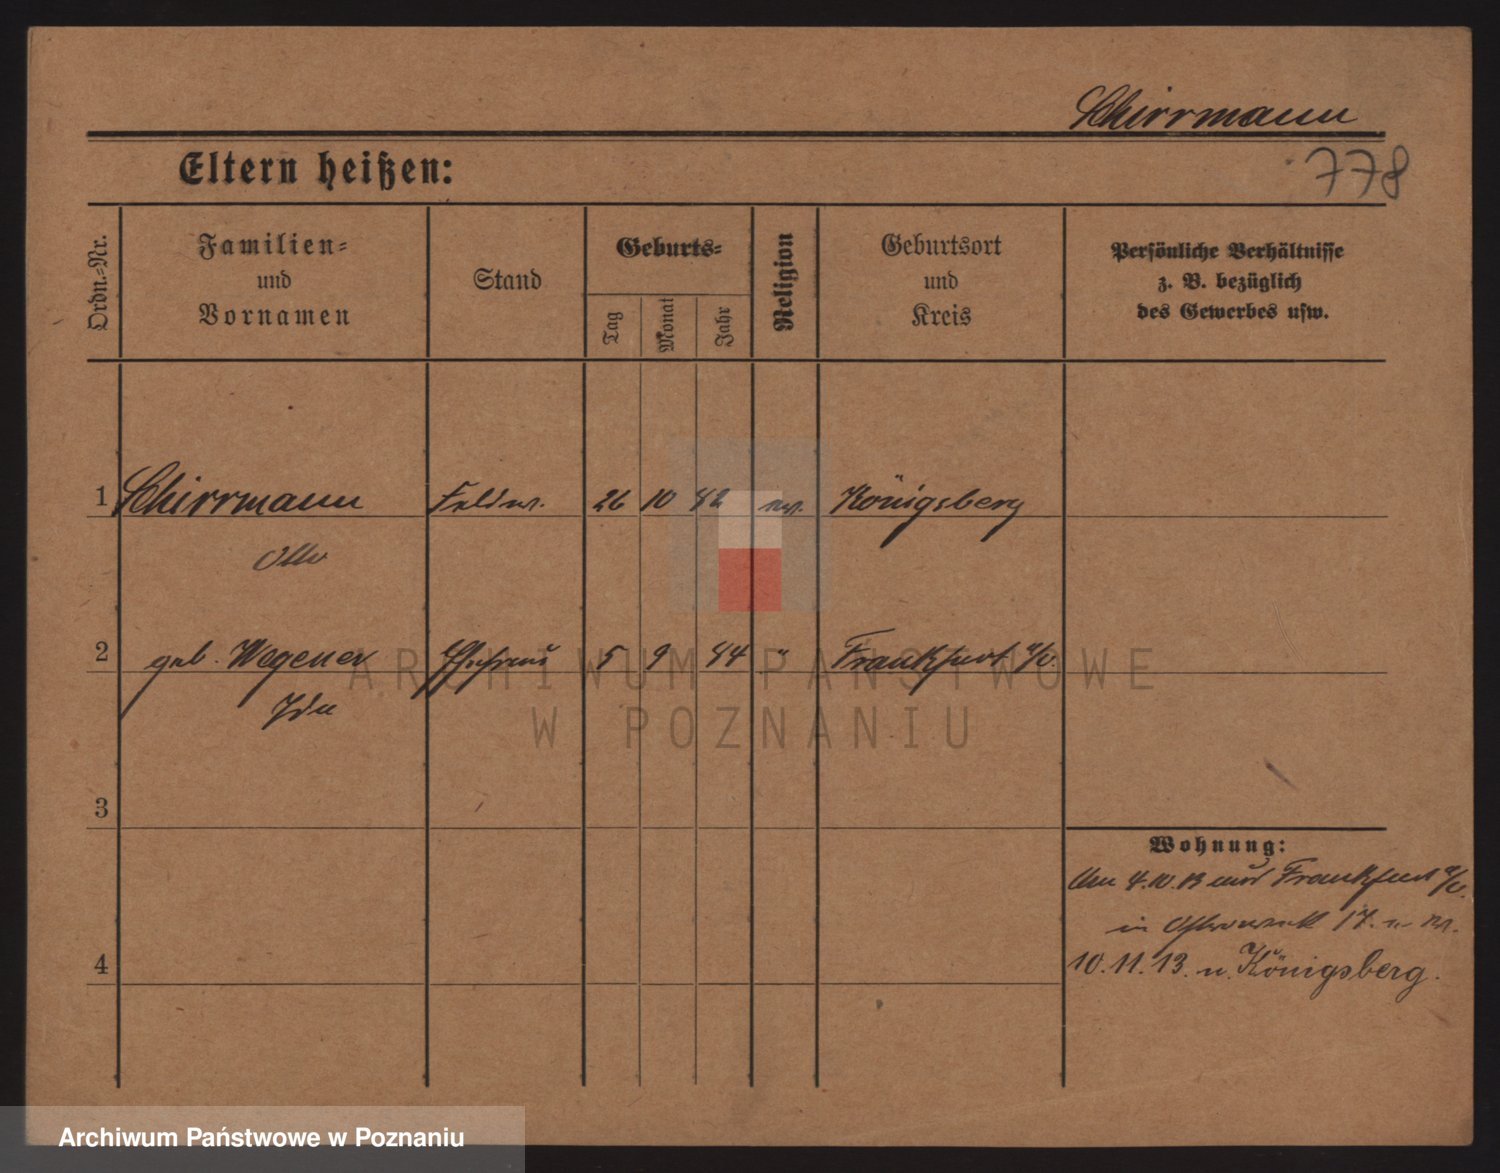 Schirrmann
778
Eltern heißen:
Ordn.-Nr.
Familien-
und
Vornamen
Stand
Geburts-
Tag
Monat
Jahr
Religion
Geburtsort
und
Kreis
Persönliche Verhältnisse
z. B. bezüglich
des Gewerbes usw.
1 Schirrmann 26 10 82 ev. Königsberg
Otto
2 geb. Wegener Ehefrau 5 9 84 " Frankfurt a/O.
Ida
ARCHIWUM PAŃSTWOWE
W POZNANIU
3
Wohnung:
Am 4.10.13 aus Frankfurt a/O.
in 17.
4
10.11.13. n. Königsberg.
Archiwum Państwowe w Poznaniu